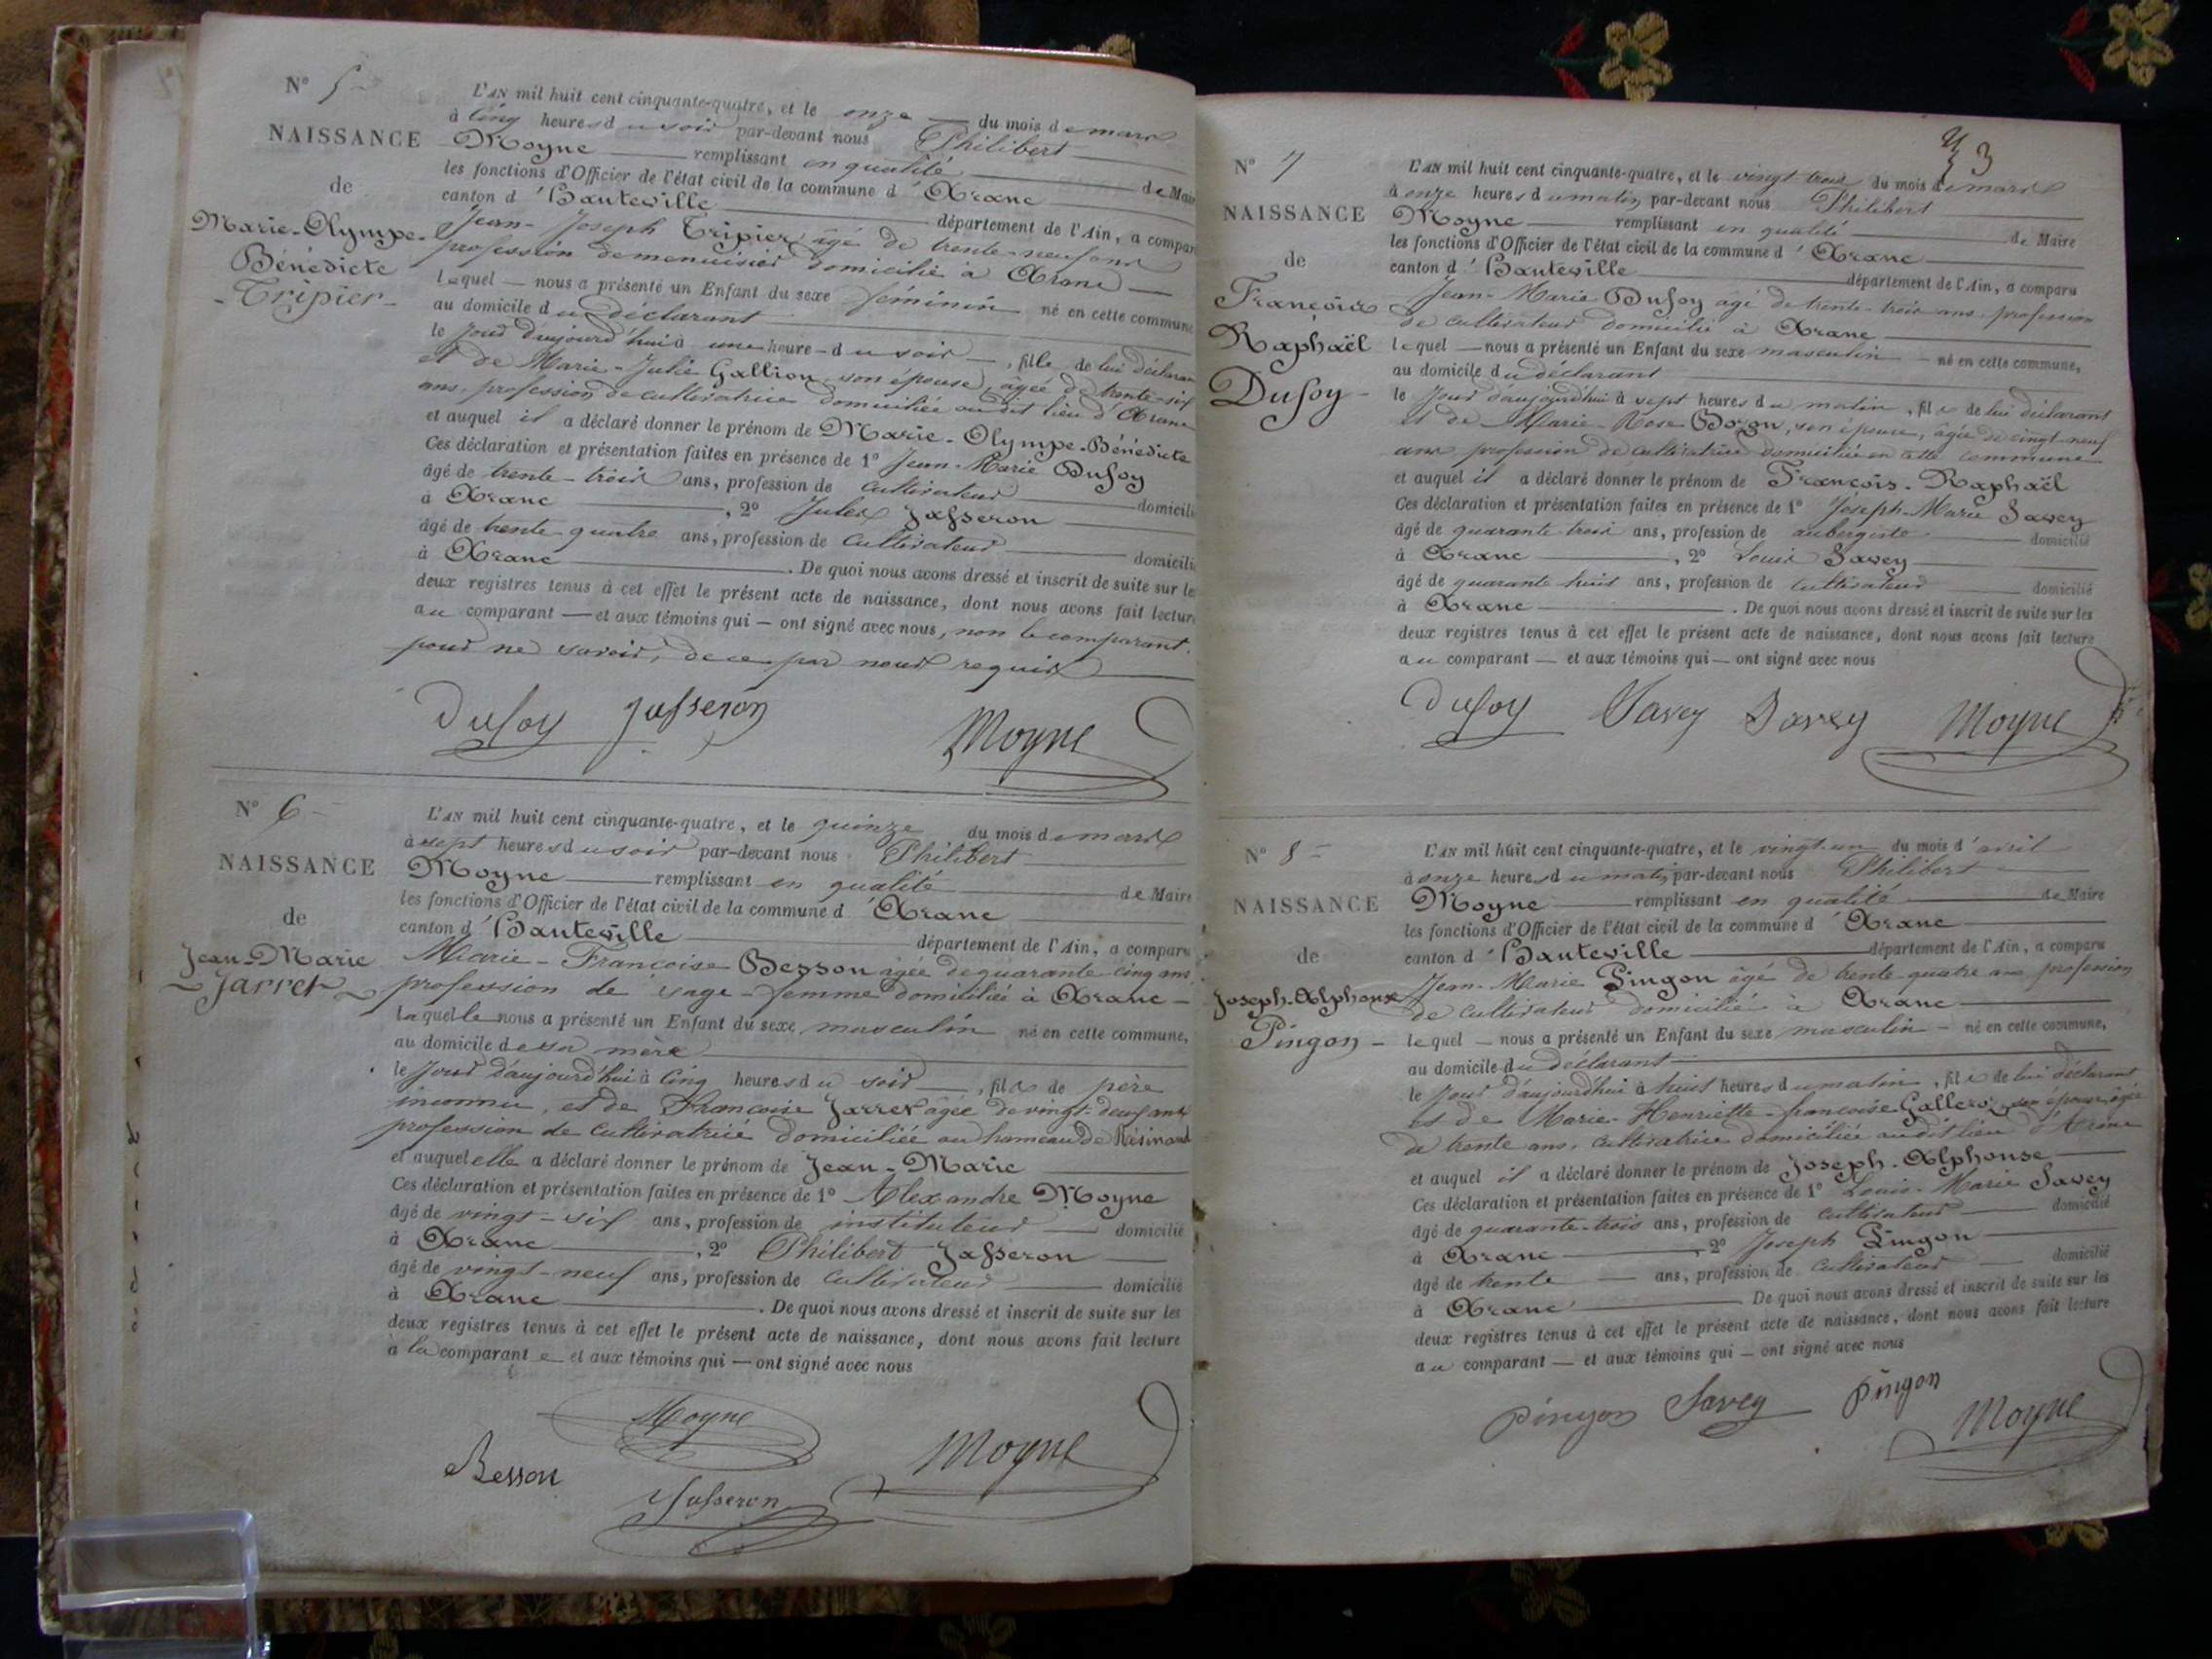 N° 5
NAISSANCE
de
Marie-Olympe-
Bénédicte
Tripier
L'AN mil huit cent cinquante-quatre, et le onze du mois de mars
à cinq heures du soir par-devant nous Philibert
Moyne remplissant en qualité de Maire
les fonctions d'Officier de l'état civil de la commune d'Aranc
canton d'Hauteville département de l'Ain, a compar
Jean-Joseph Tripier, âgé de trente-neuf ans
profession de menuisier domicilié à Aranc
lequel nous a présenté un Enfant du sexe féminin né en cette commune
au domicile du déclarant
le jour d'aujourd'hui à une heure du soir, fille de lui déclarant
et de Marie-Julie Gallion, son épouse, âgée de trente-six
ans, profession de cultivatrice domiciliée au dit lieu d'Aranc
et auquel il a déclaré donner le prénom de Marie-Olympe-Bénédicte
Ces déclaration et présentation faites en présence de 1° Jean-Marie Dufoy
âgé de trente-trois ans, profession de cultivateur domicili
à Aranc, 2° Jules Jasseron
âgé de trente-quatre ans, profession de cultivateur domicili
à Aranc. De quoi nous avons dressé et inscrit de suite sur le
deux registres tenus à cet effet le présent acte de naissance, dont nous avons fait lectur
au comparant et aux témoins qui ont signé avec nous, non le comparant.
pour ne savoir, de ce par nous requis
Dufoy Jasseron
Moyne
N° 6
NAISSANCE
de
Jean-Marie
Jarret
L'AN mil huit cent cinquante-quatre, et le quinze du mois de mars
à sept heures du soir par-devant nous Philibert
Moyne remplissant en qualité de Maire
les fonctions d'Officier de l'état civil de la commune d'Aranc
canton d'Hauteville département de l'Ain, a comparu
Marie-Françoise Besson âgée de quarante-cinq ans,
profession de sage-femme domiciliée à Aranc
laquelle nous a présenté un Enfant du sexe masculin né en cette commune,
au domicile de sa mère
le jour d'aujourd'hui à cinq heures du soir, fils de père
inconnu, et de Françoise Jarret âgée de vingt-deux ans
profession de cultivatrice domiciliée au hameau de Résinand
et auquel elle a déclaré donner le prénom de Jean-Marie
Ces déclaration et présentation faites en présence de 1° Alexandre Moyne
âgé de vingt-six ans, profession de instituteur domicilié
à Aranc, 2° Philibert Jasseron
âgé de vingt-neuf ans, profession de cultivateur domicilié
à Aranc. De quoi nous avons dressé et inscrit de suite sur les
deux registres tenus à cet effet le présent acte de naissance, dont nous avons fait lecture
à la comparante et aux témoins qui ont signé avec nous
Moyne
Besson Moyne
Jasseron
3
N° 7
NAISSANCE
de
François
Raphaël
Dufoy
L'AN mil huit cent cinquante-quatre, et le vingt trois du mois de mars
à onze heures du matin, par-devant nous Philibert
Moyne remplissant en qualité de Maire
les fonctions d'Officier de l'état civil de la commune d'Aranc
canton d'Hauteville département de l'Ain, a comparu
Jean-Marie Dufoy âgé de trente-trois ans, profession
de cultivateur domicilié à Aranc
lequel nous a présenté un Enfant du sexe masculin né en cette commune,
au domicile du déclarant
le jour d'aujourd'hui à sept heures du matin, fils de lui déclarant
et de Marie-Rose Bozon, son épouse, âgée de vingt-neuf
ans profession de cultivatrice domiciliée en cette commune
et auquel il a déclaré donner le prénom de François-Raphaël
Ces déclaration et présentation faites en présence de 1° Joseph-Marie Savey
âgé de quarante trois ans, profession de aubergiste domicilié
à Aranc, 2° Louis Savey
âgé de quarante huit ans, profession de cultivateur domicilié
à Aranc. De quoi nous avons dressé et inscrit de suite sur les
deux registres tenus à cet effet le présent acte de naissance, dont nous avons fait lecture
au comparant et aux témoins qui ont signé avec nous
Dufoy Savey Savey Moyne
N° 8
NAISSANCE
de
Joseph-Alphonse
Pingon
L'AN mil huit cent cinquante-quatre, et le vingt-un du mois d'avril
à onze heures du matin, par-devant nous Philibert
Moyne remplissant en qualité de Maire
les fonctions d'Officier de l'état civil de la commune d'Aranc
canton d'Hauteville département de l'Ain, a comparu
Jean-Marie Pingon âgé de trente-quatre ans profession
de cultivateur domicilié à Aranc
lequel nous a présenté un Enfant du sexe masculin né en cette commune,
au domicile du déclarant
le jour d'aujourd'hui à huit heures du matin, fils de lui déclarant
et de Marie-Henriette-françoise son épouse, âgée
de trente ans, cultivatrice domiciliée au dit lieu d'Aranc
et auquel il a déclaré donner le prénom de Joseph-Alphonse
Ces déclaration et présentation faites en présence de 1° Louis-Marie Savey
âgé de quarante-trois ans, profession de cultivateur domicilié
à Aranc, 2° Joseph Pingon
âgé de trente ans, profession de cultivateur domicilié
à Aranc. De quoi nous avons dressé et inscrit de suite sur les
deux registres tenus à cet effet le présent acte de naissance, dont nous avons fait lecture
au comparant et aux témoins qui ont signé avec nous
Pingon Savey Pingon
Moyne